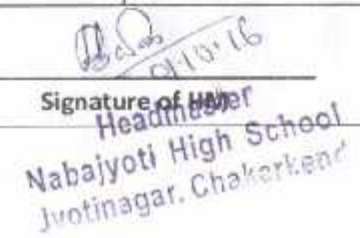 01.10.16
Signature of HM
Headmaster
Nabajyoti High School
Jyotinagar. Chakerkend